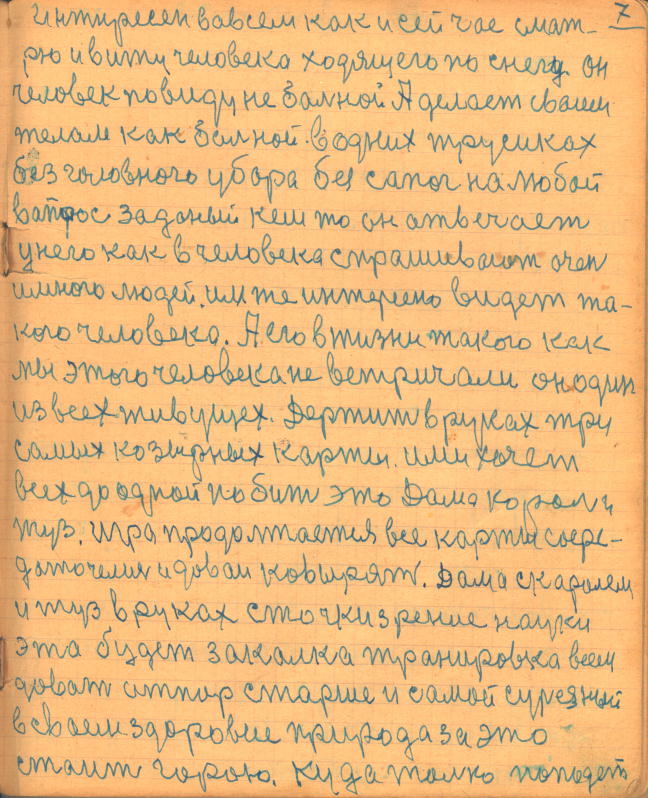 7
Интиресен вовсем как и сей час смат-
рю и вижу человека ходящего по снегу. он
человек по виду не болной А делает своем
телам как болной. в одних трусиках
без головного убора без сапог на любой
вапрос заданый кем то он отвечает
у него как в человека спрашивают очен
много людей. им же интересно видет та-
кого человека. А его в жизни такого как
мы этого человека не встричали он один
из всех живущех. Держит в руках три
самых козырных карты. ими хочет
всех до одной побит это Дама король и
туз. игра продолжается все карты сосре-
доточелися и довай ковырят. Дама с каралем
и туз в руках сточки зрение науки
эта будет закалка транировка всем
доват атпор старше и самой сурезный
в своем здоровие природа за это
стаит горою. куда толко поподет